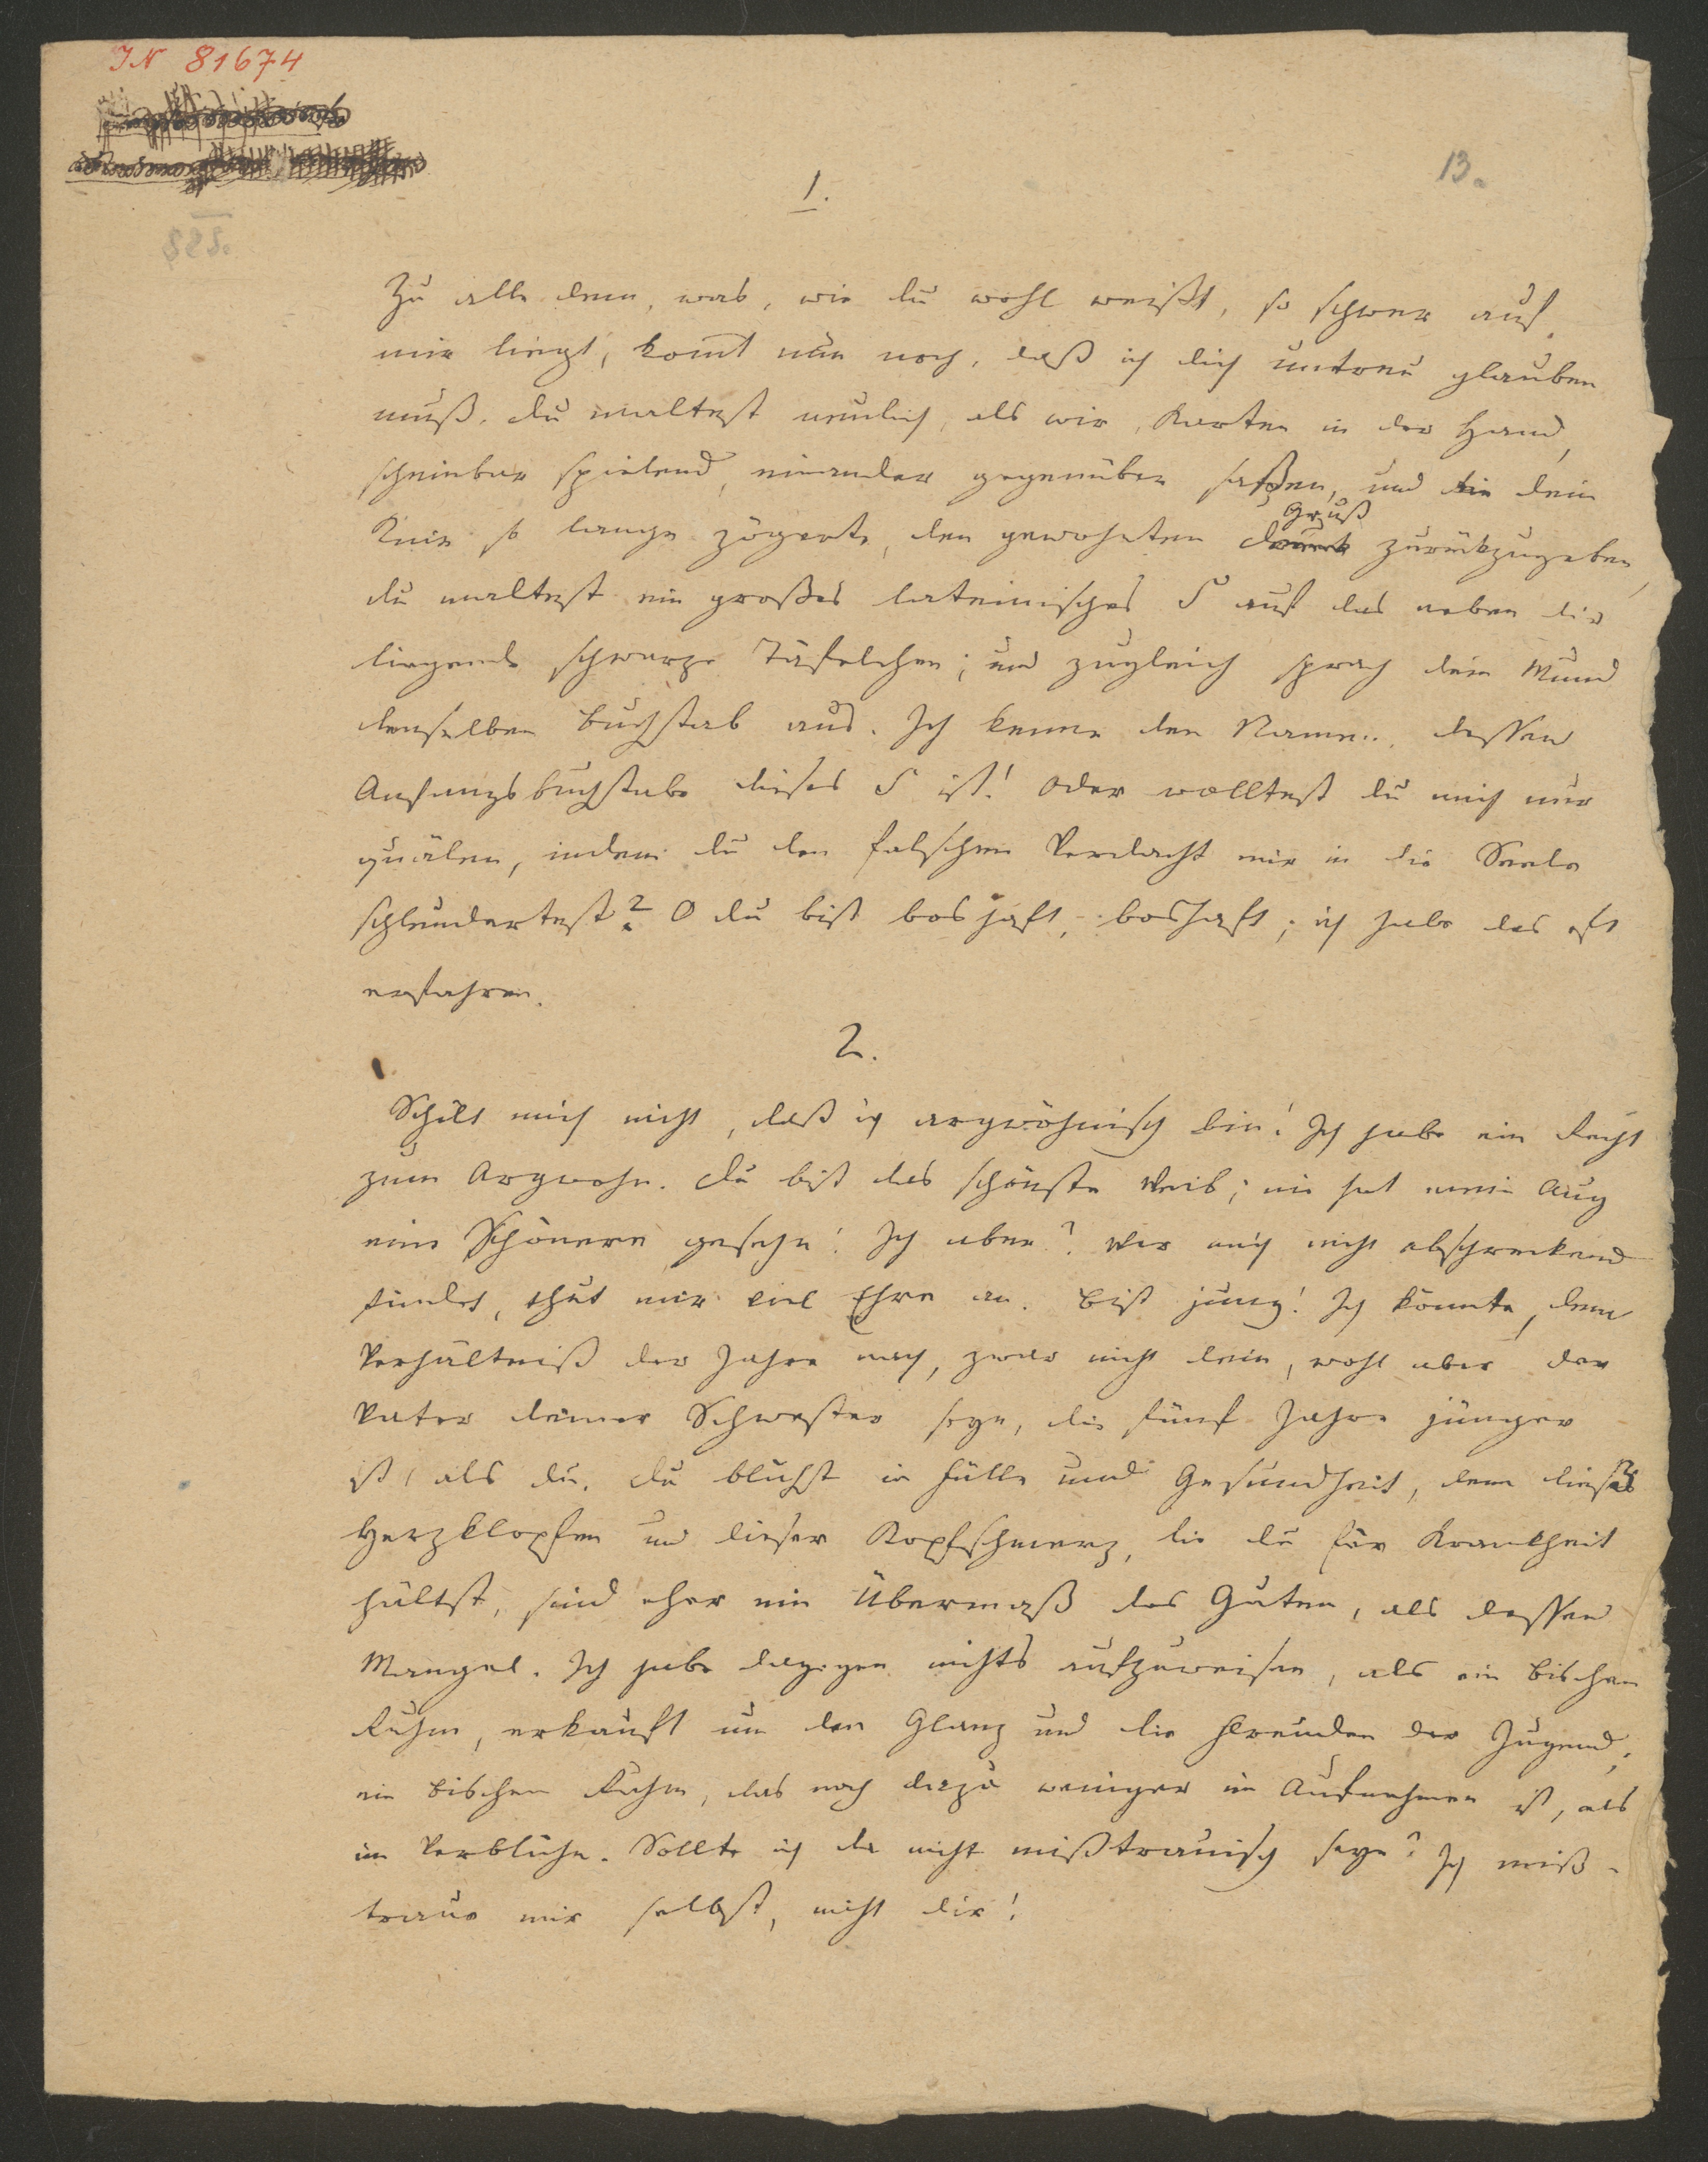 IN 81674
13.
1.
Zu alle dem, was, wie du wohl weißt, so schwer auf
mir liegt, kom̄t nun noch, daß ich dich untreu glauben
muß. Du maltest neulich, als wir, Karten in der Hand,
scheinbar spielend, einander gegenüber saßen, und dein
Gruß
Knie so lange zögerte, den gewohnten Druck zurückzugeben,
du maltest ein großes lateinisches S auf das neben dir
liegende schwarze Täfelchen; und zugleich sprach dein Mund
denselben Buchstab aus. Ich kenne den Namen, dessen
Anfangsbuchstabe dieses S ist! Oder wolltest du mich nur
quälen, indem du den falschen Verdacht mir in die Seele
schleudertest? O du bist boshaft, boshaft; ich habe das oft
erfahren.
2.
Schilt mich nicht, daß ich argwöhnisch bin! Ich habe ein Recht
zum Argwohn. Du bist das schönste Weib; nie hat mein Aug
eine Schönere gesehn! Ich aber? Wer mich nicht abschreckend
findet, thut mir viel Ehre an. Bist jung! Ich könnte, dem
Verhältniß der Jahre nach, zwar nicht dein, wohl aber der
Vater deiner Schwester seyn, die fünf Jahre jünger
ist, als du. Du blühst in Fülle und Gesundheit, denn dieses
Herzklopfen und dieser Kopfschmerz, die du für Krankheit
hältst, sind eher ein Übermaß des Guten, als dessen
Mangel. Ich habe dagegen nichts aufzuweisen, als ein bischen
Ruhm, erkauft um den Glanz und die Freuden der Jugend,
ein bischen Ruhm, das noch dazu weniger im Aufnehmen ist, als
im Verblühn. Sollte ich da nicht mißtrauisch seyn? Ich miß-
traue mir selbst, nicht dir!